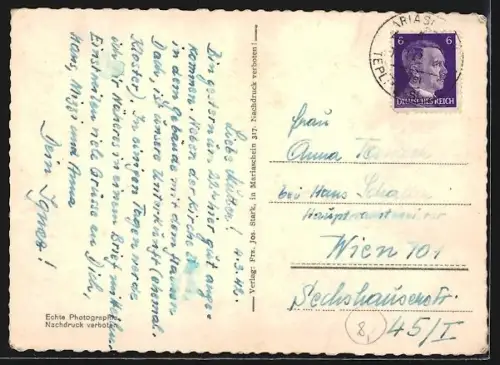 Liebe Mutter! 4.3.42.
Bin gestern um 22 hier gut ange
kommen. Neben der Kirche
in dem Gebäude mit dem
Dach, ist unsere Unterkunft (ehemal.
Kloster). In einigen Tagen werde
ich Dir Näheres in einem Brief mitteilen.
Einstweilen viele Grüsse an Dich,
Hans, Mizzi und Anna
Dein Ignaz!
Echte Photographie
Nachdruck verboten
Verlag: Frz. Jos. Stark, in Mariaschein 317. Nachdruck verboten!
6 6
DEUTSCHES REICH
Frau
Anna
bei Hans
Wien 101
Sechshauserstr.
45/I
8